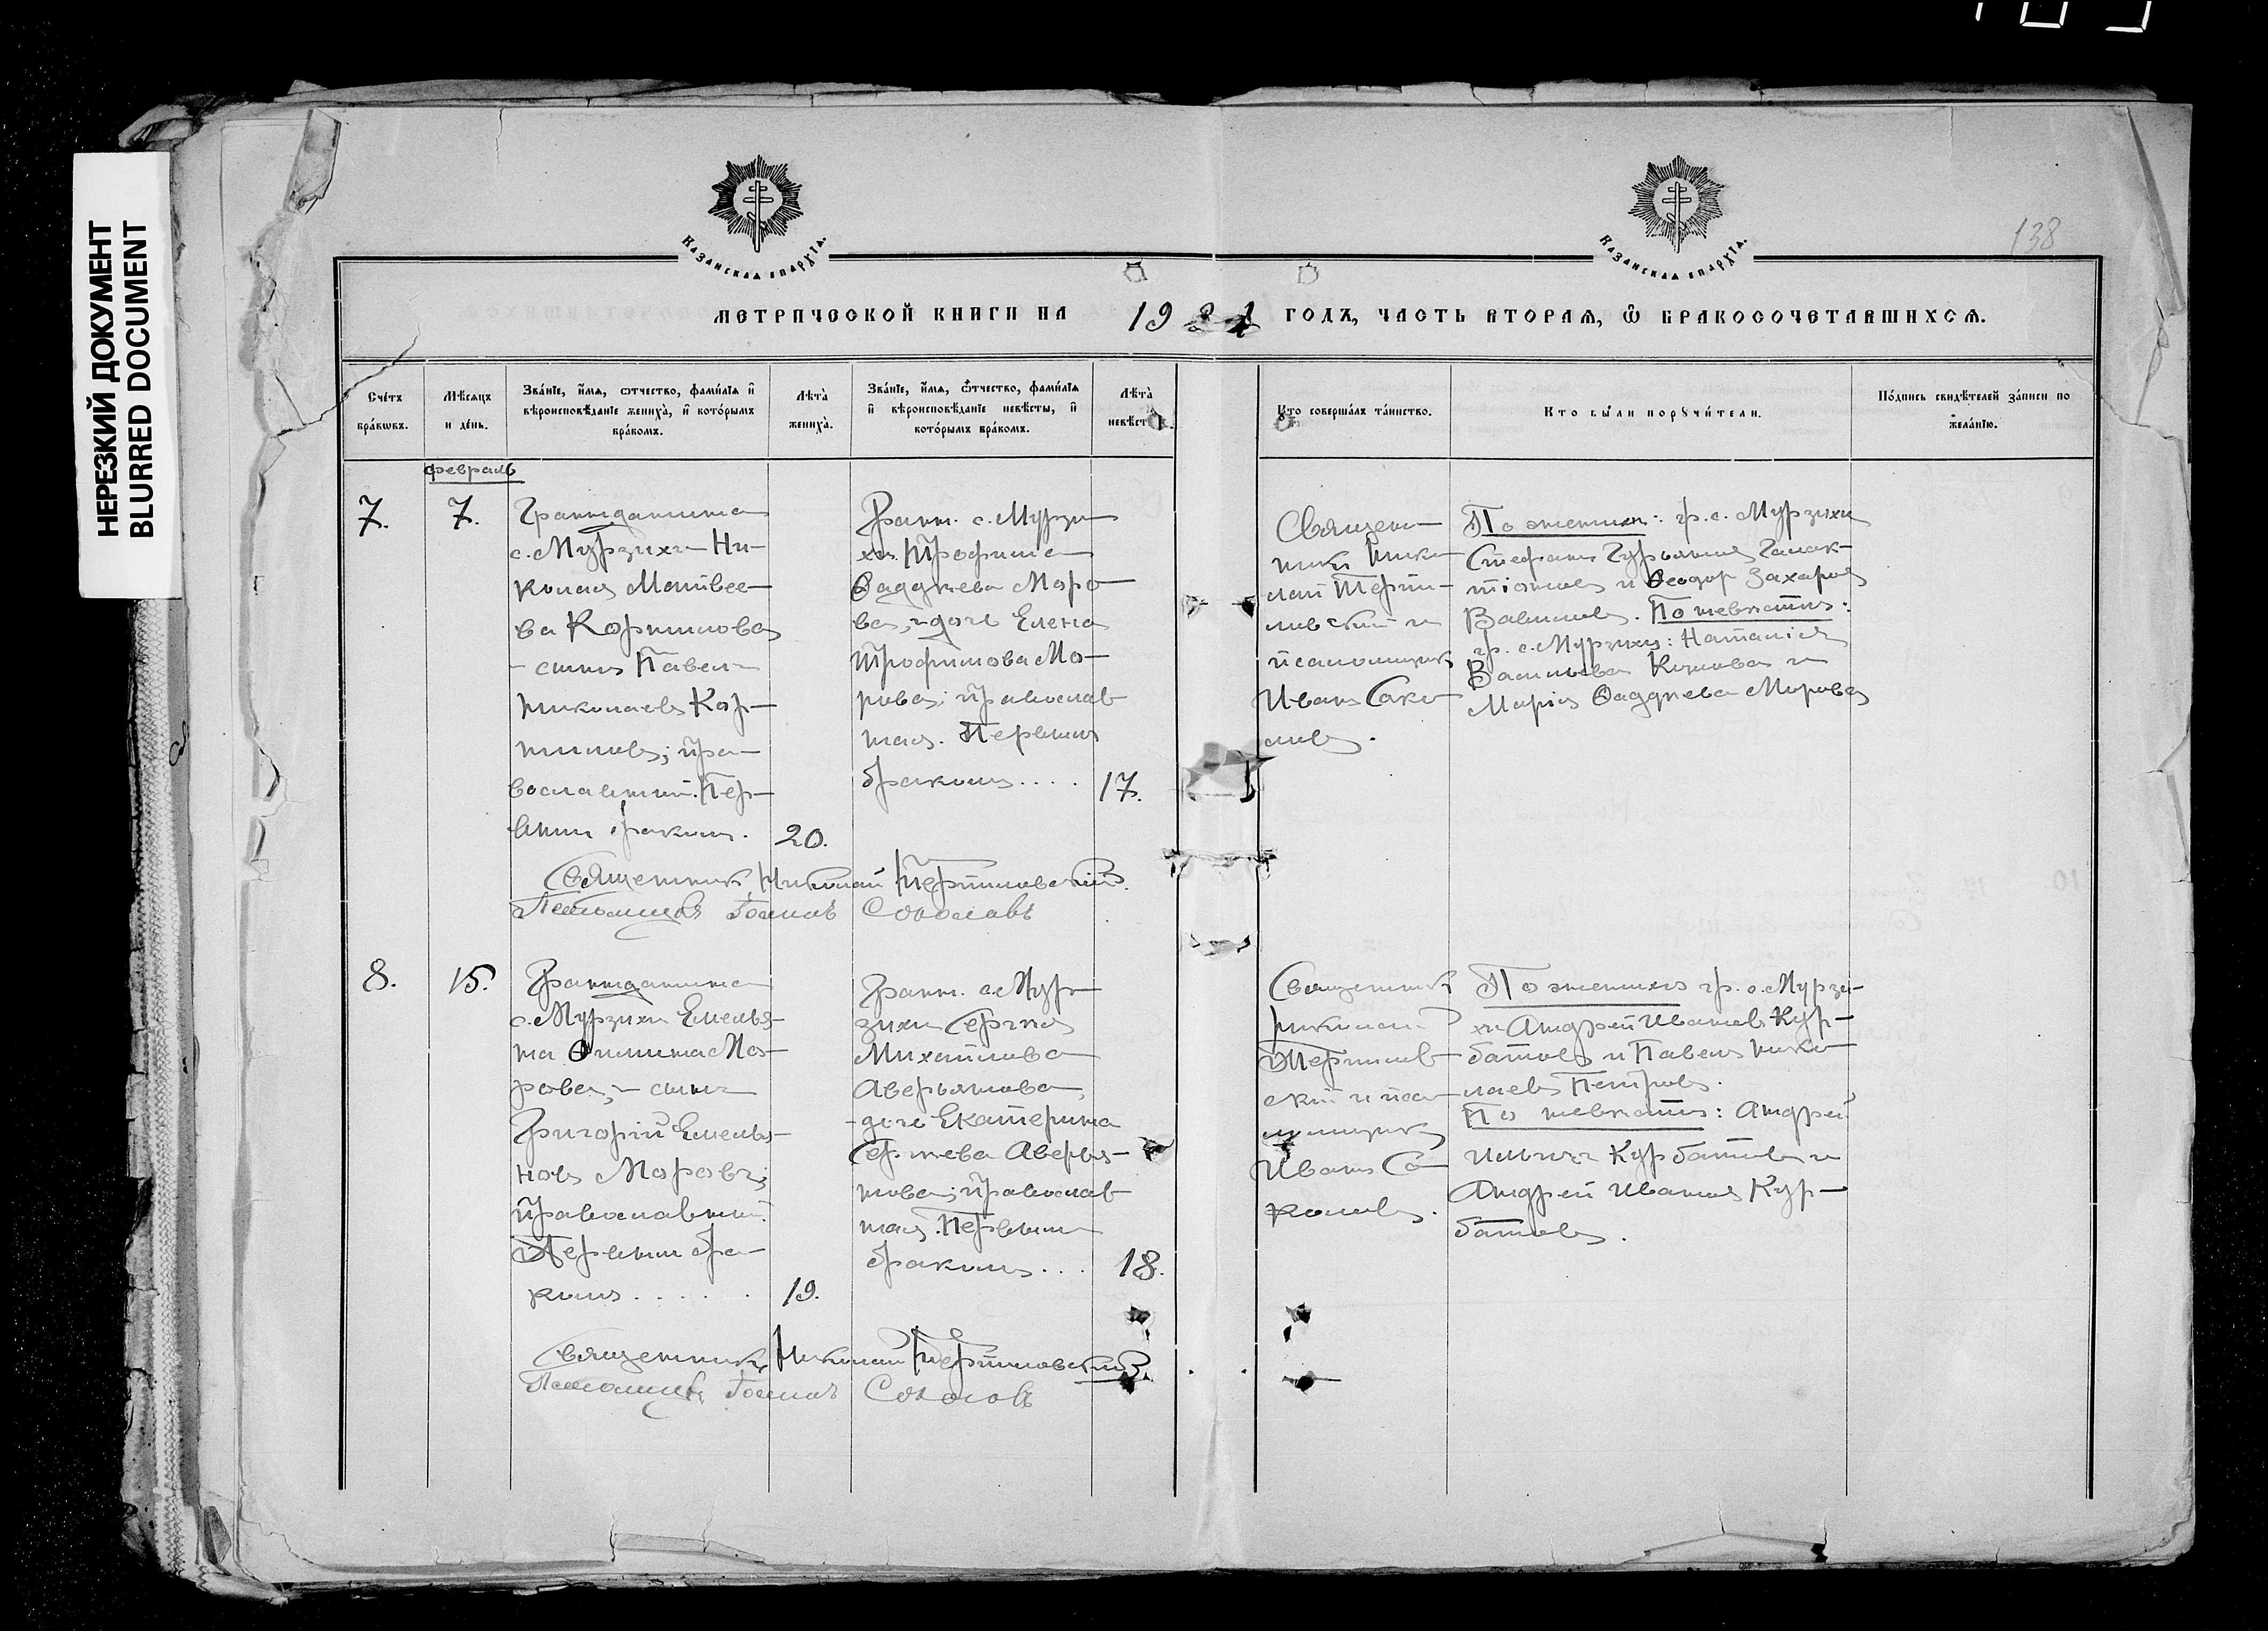 НЕРЕЗКИЙ ДОКУМЕНТ
BLURRED DOCUMENT
Казанская епархїѧ.
Казанская епархїѧ.
138
МЕТРИЧЕСКОЙ КНИГИ НА 1921 ГОДЪ, ЧАСТЬ ВТОРАѦ, Ѽ БРАКОСОЧЕТАВШИХСѦ.
Сче́тъ бра́кѡвъ.
Мѣ́сѧцъ и де́нь.
Зва́нїе, и́мѧ, ѻтчество, фами́лїѧ и
вѣроисповѣ́данїе жениха̀, и кото́рымъ
бра́комъ.
Лѣта̀ жениха̀.
Зва́нїе, и́мѧ, ѻ́тчество, фами́лїѧ
и вѣроисповѣ́данїе невѣ́сты, и
кото́рымъ бра́комъ.
Лѣта̀ невѣ́ст
Кто соверша́лъ та́инство.
Кто бы́ли порꙋчи́тели.
По́дпись свидѣ́телей за́писи по
жела́нїю.
февраль
7.
7.
Гражданина
с. Мурзихи Ни-
колая Матвее-
ва Корнилова
- сынъ Павелъ
Николаевъ Кор-
ниловъ; пра-
вославный. Пер-
вымъ бракомъ.
20.
Гражд. с. Мурзи
хи Трофима
Ѳаддѣева Моро
ва, - дочь Елена
Трофимова Мо-
рова; православ
ная. Первымъ
бракомъ....
17.
Священ-
никъ Нико
лай
и
псаломщикъ
Иванъ Соко
ловъ.
По женихѣ: гр. с. Мурзихи
Стефанъ Гурьяновъ Галак-
тіоновъ и Ѳеодоръ Захаровъ
Вавиловъ. По невѣстѣ:
гр. с. Мурзихи: Наталія
Васильева и
Марія Ѳаддѣева Морова
Священникъ Николай
Псаломщикъ Іоаннъ Соколовъ
8.
15.
Гражданина
с. Мурзихи Емелья-
на Филиппа Мо-
рова, - сынъ
Григорій Емелья-
новъ Моровъ;
православный.
Первымъ бра-
комъ.....
19.
Гражд. с. Мур
зихи Сергѣя
Михайлова
Аверьянова,
- дочь Екатерина
Сергѣева Аверья-
нова; православ
ная. Первымъ
бракомъ...
18.
Священникъ
Николай
скій и пса-
ломщикъ
Иванъ Со-
коловъ.
По женихѣ гр. с. Мурзи-
хи Андрей Ивановъ Кур-
батовъ и Павелъ Нико
лаевъ Петровъ.
По невѣстѣ: Андрей
Ильичъ Курбатовъ и
Андрей Ивановъ Кур-
батовъ.
Священникъ Николай
Псаломщикъ Іоаннъ Соколовъ